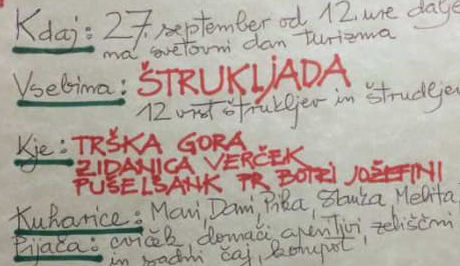 Kdaj: 27. september od 12. ure dalje
na svetovni dan turizma
Vsebina: ŠTRUKLJADA
12 vrst štrukljev in štrudljev
Kje: TRŠKA GORA
ZIDANICA VERČEK
PUŠELŠANK PR BOTRI JOŽEFINI
Kuharice: Mari, Dani, Pika, Stanža, Melita
Pijača: cviček, domači aperitivi, zeliščni
in sadni čaj, kompot,